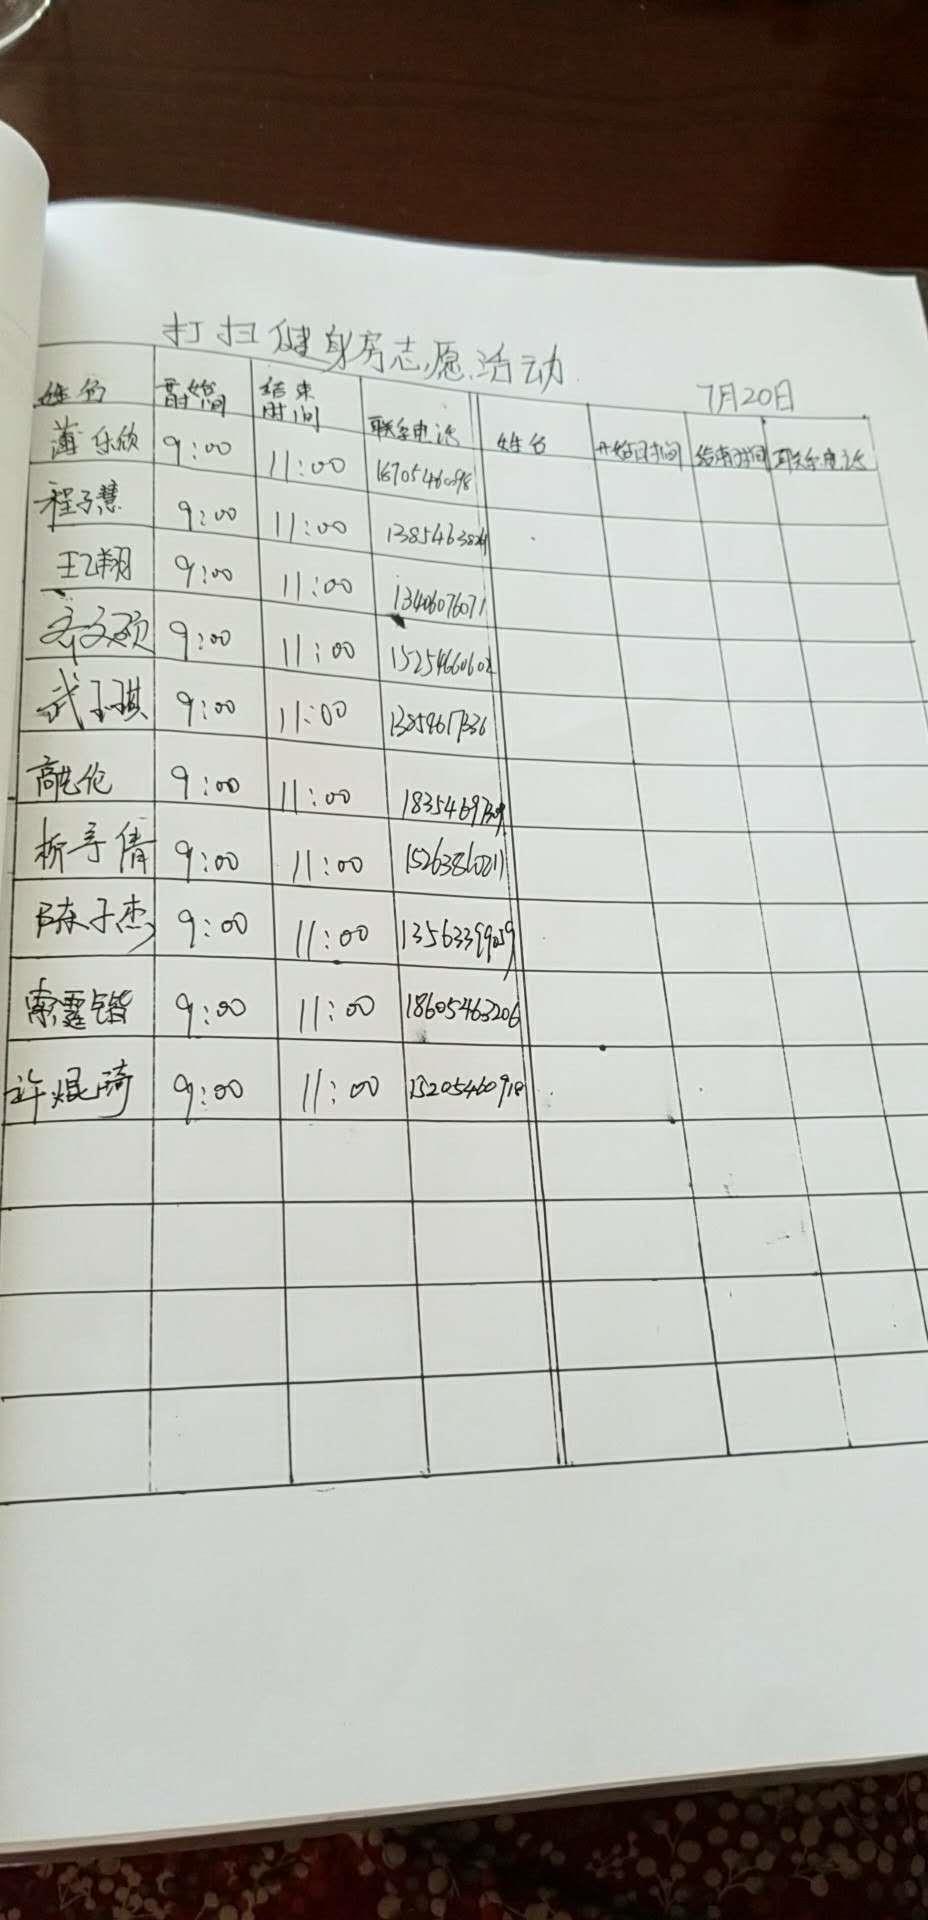 打扫健身房志愿活动
7月20日
姓名 开始时间 结束时间 联系电话 姓名 开始时间 结束时间 联系电话
薄乐欣 9:00 11:00
程子慧 9:00 11:00
王乙翔 9:00 11:00 13406076071
齐文硕 9:00 11:00
武子琪 9:00 11:00
高艺伦 9:00 11:00
9:00 11:00 15263860211
陈子杰 9:00 11:00 13563399059
9:00 11:00 18605463206
许焜琦 9:00 11:00 15205460918